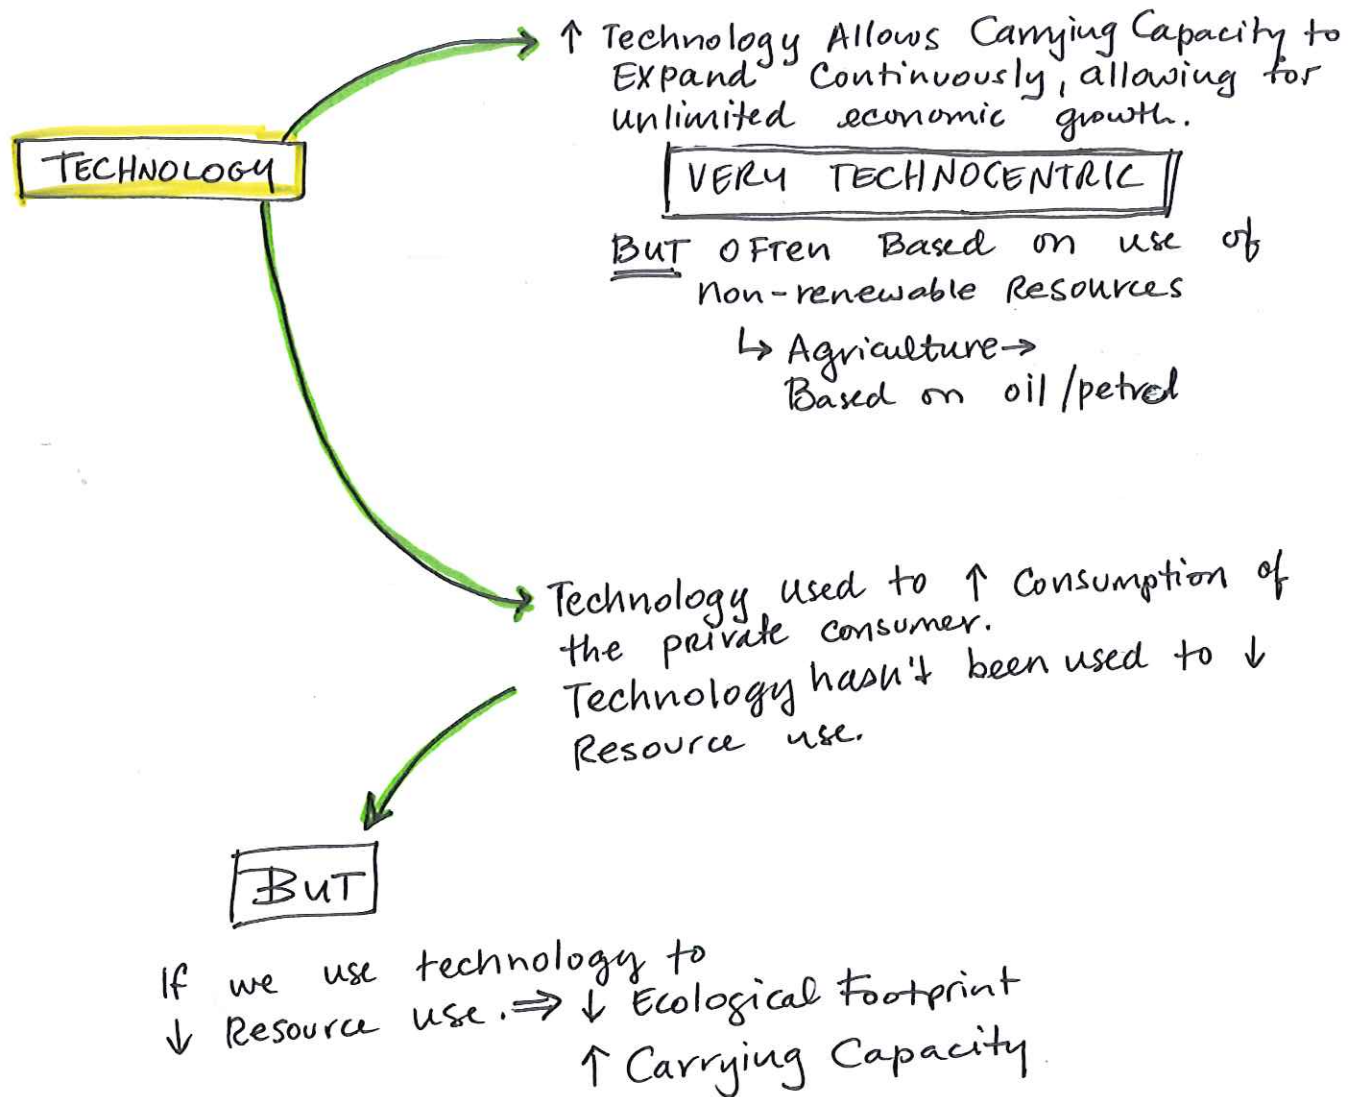 TECHNOLOGY
↑ Technology Allows Carrying Capacity to
Expand Continuously, allowing for
unlimited economic growth.
VERY TECHNOCENTRIC
BUT OFten Based on use of
non-renewable Resources
↳ Agriculture→
Based on oil/petrol
Technology used to ↑ Consumption of
the private consumer.
Technology hasn't been used to ↓
Resource use.
BUT
If we use technology to
↓ Resource use. ⇒ ↓ Ecological Footprint
↑ Carrying Capacity